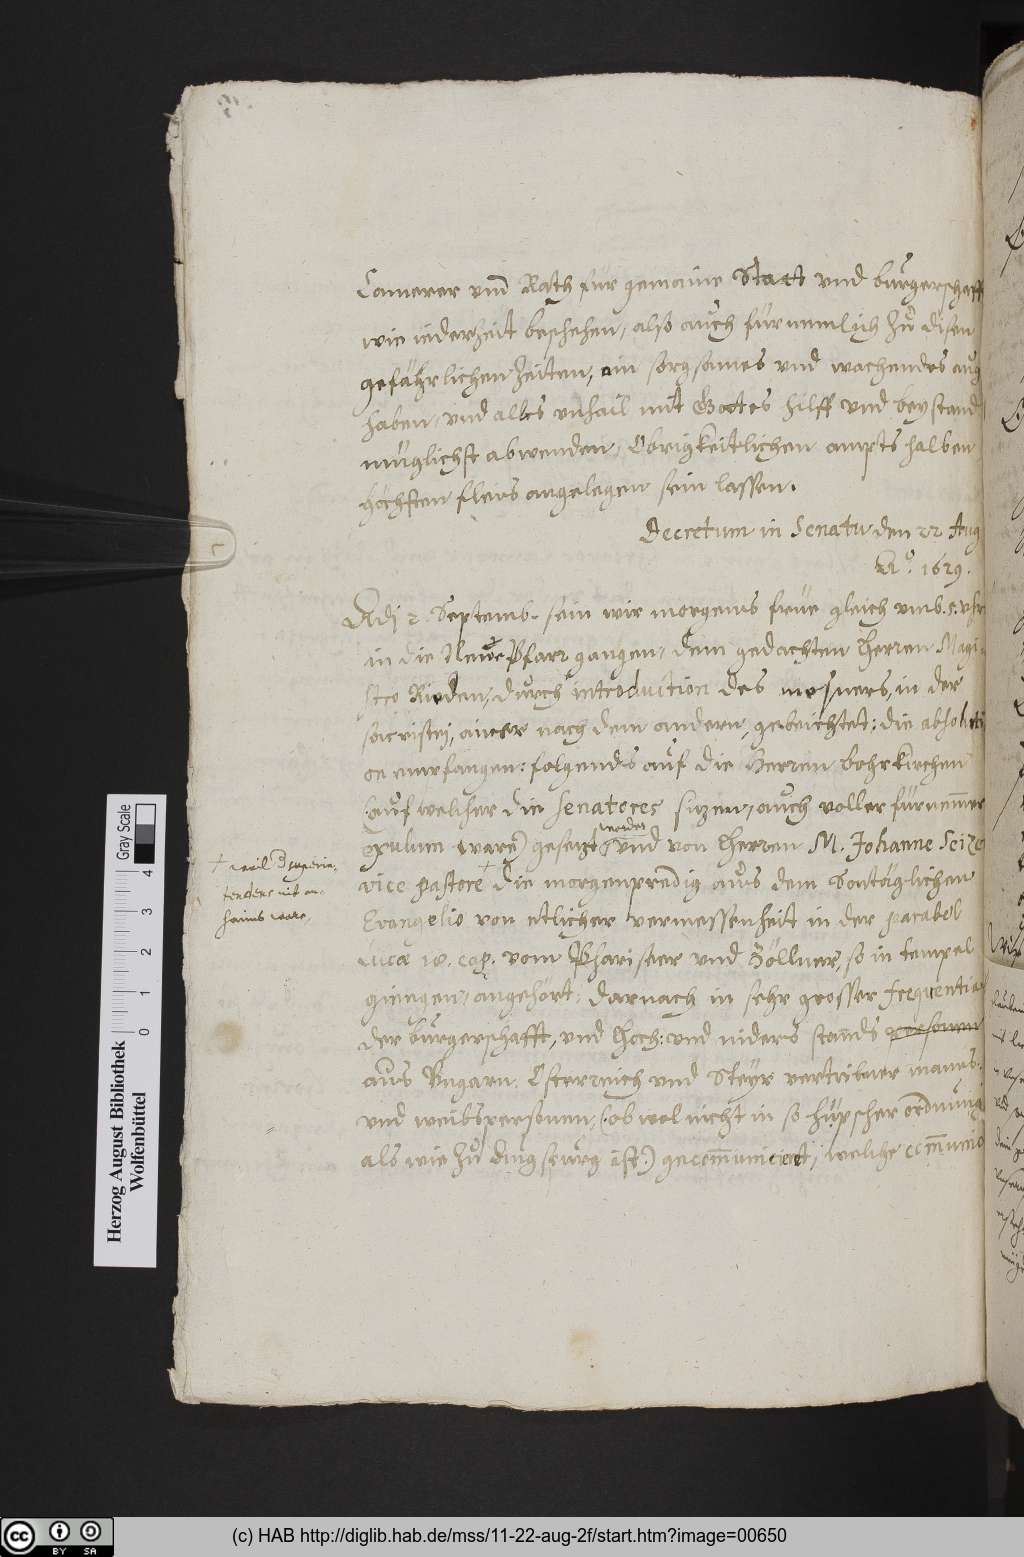 Camerer vnd Rath für gemaine Statt vnd burgerschafft
wie iederzeit beschehen, also auch fürnemlich zu disen
gefährlichen Zeiten, ein sorgsames vnd wachendes aug
haben, vnd alles vnhail mit Gottes hilff vnd beystand
müglichst abwenden, Obrigkeitlichen ampts halben
höchsten fleis angelegen sein lassen.
Decretum in Senatu den 22 Aug
Ao. 1629.
Adj 2 Septemb. sein wir morgens früe gleich vmb 5 vhr
in die Newe Pfarr gangen, dem gedachten Herren Magi-
stro Rieden, durch introduction des mesners, in der
sacristej, ainer nach dem andern, gebeichtet: die absoluti
on empfangen: folgends auf die Herren bohrkirchen
(auf welcher die Senatores sizen, auch voller fürnemmer
exulum ware) gesetzt worden vnd von Herren M. Johanne Seize
vice pastore + die morgenpredig aus dem Sontäglichen
Evangelio von etlicher vermessenheit in der parabel
Lucæ 18. cap. vom Phariseer vnd Zöllner, so in tempel
giengen, angehört, darnach in sehr grosser frequentia
der burgerschafft, vnd hoch: vnd niders stands personen
aus Vngarn, Osterreich vnd Steyr vertribner manns-
vnd weibspersonen, (ob wol nicht in so hüpscher ordnung
als wie zu ist) gecommunicirt, welche communio
+ weil Superin-
tendens nit an-
haims ware.
Gray Scale
0 1 2 3 4
Herzog August Bibliothek
Wolfenbüttel
cc BY SA
(c) HAB http://diglib.hab.de/mss/11-22-aug-2f/start.htm?image=00650